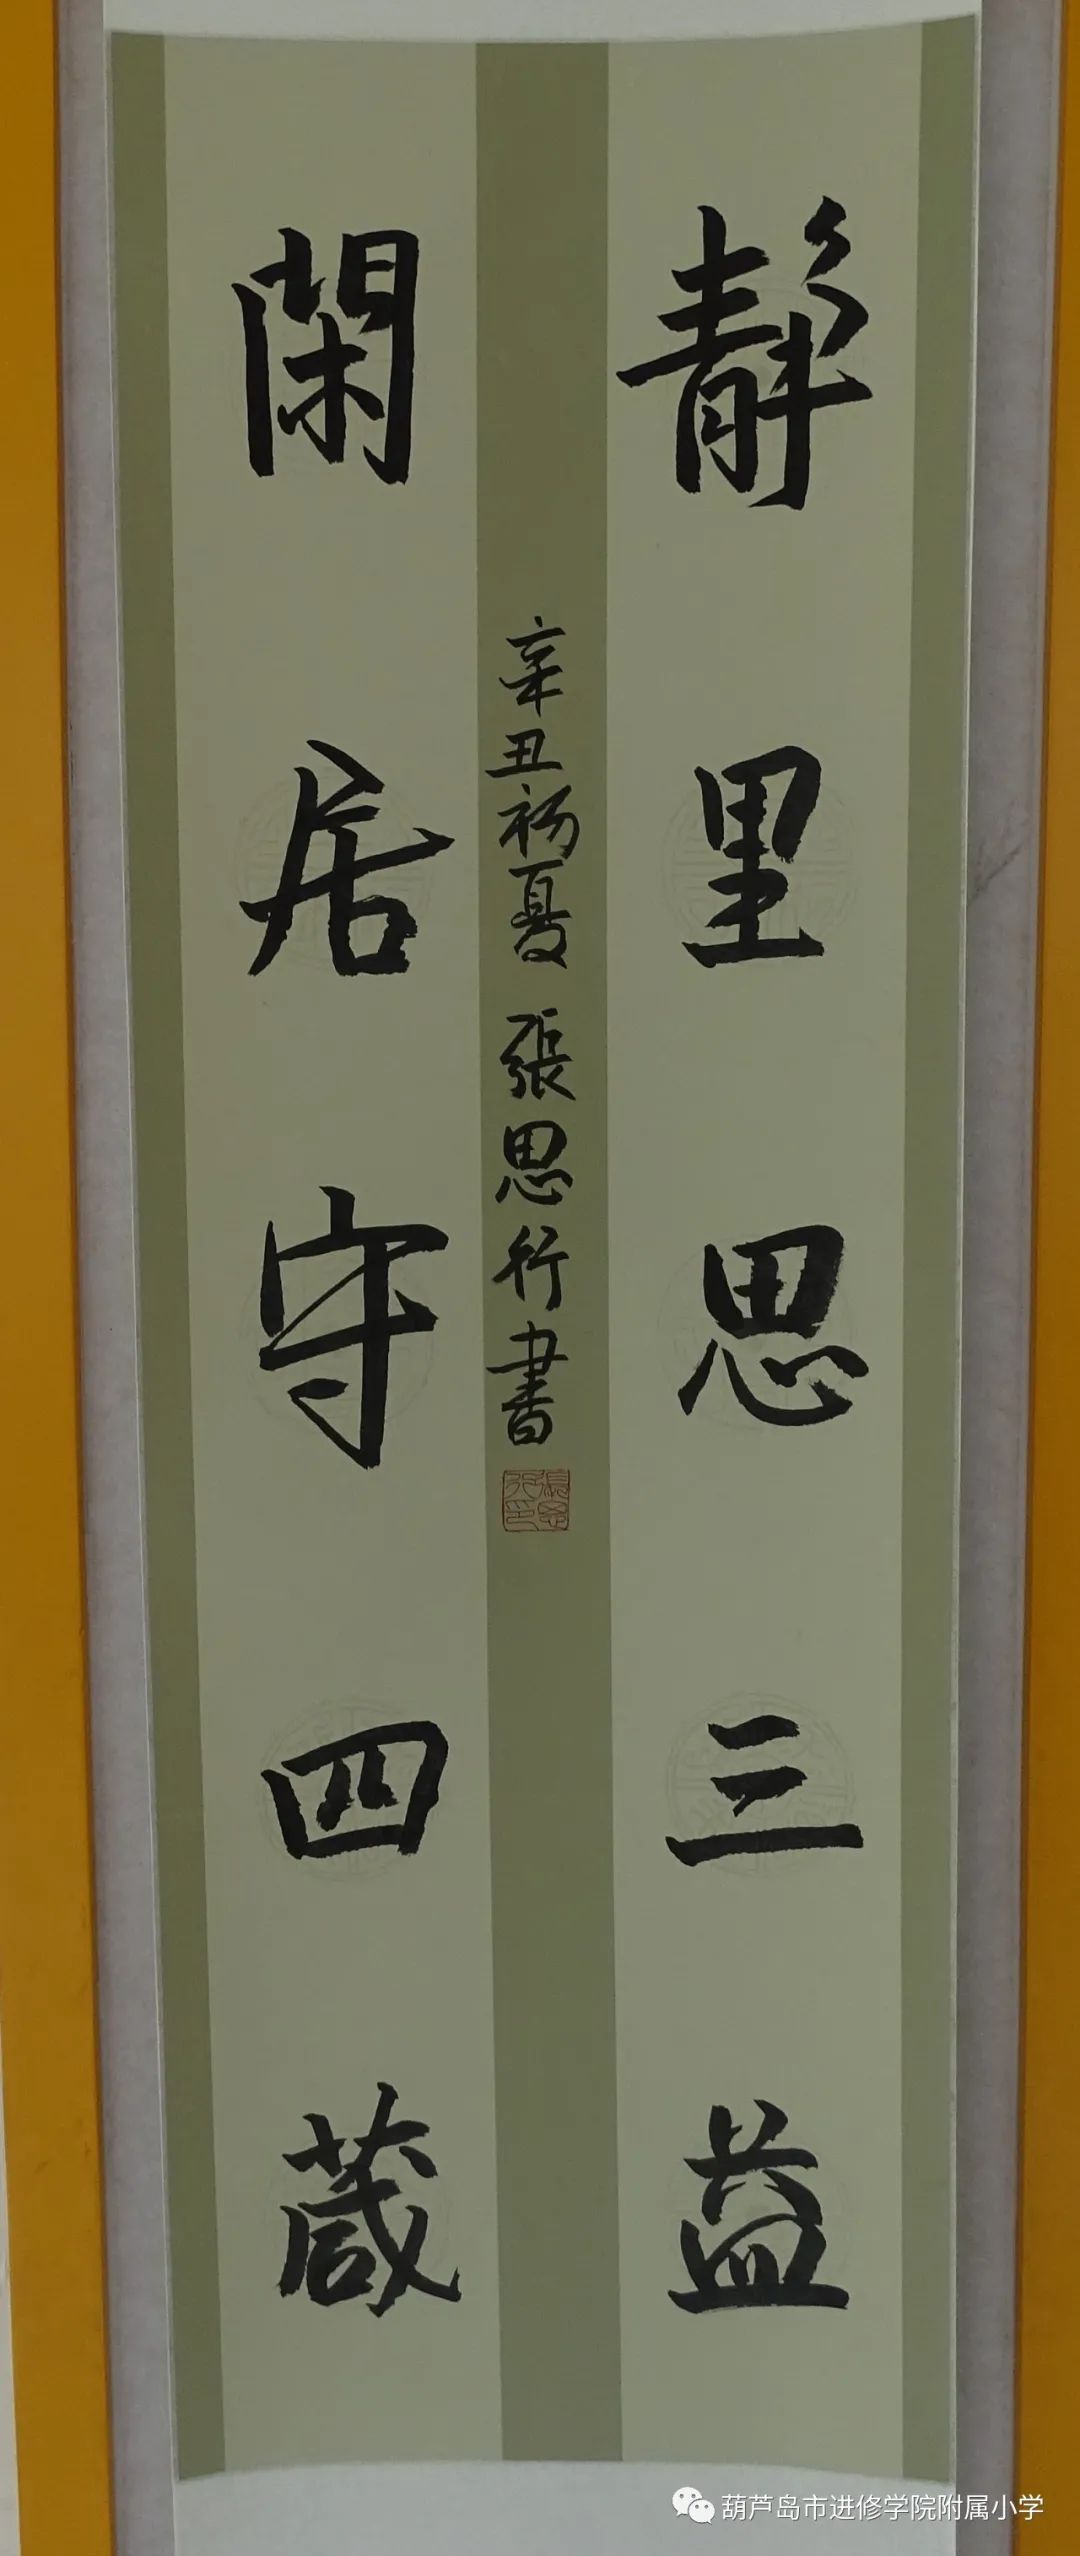 靜里思三益
閑居守四箴
辛丑初夏 張思行書
張思行印
葫芦岛市进修学院附属小学